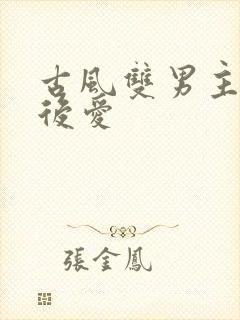 古風雙男主
後愛
張金鳳